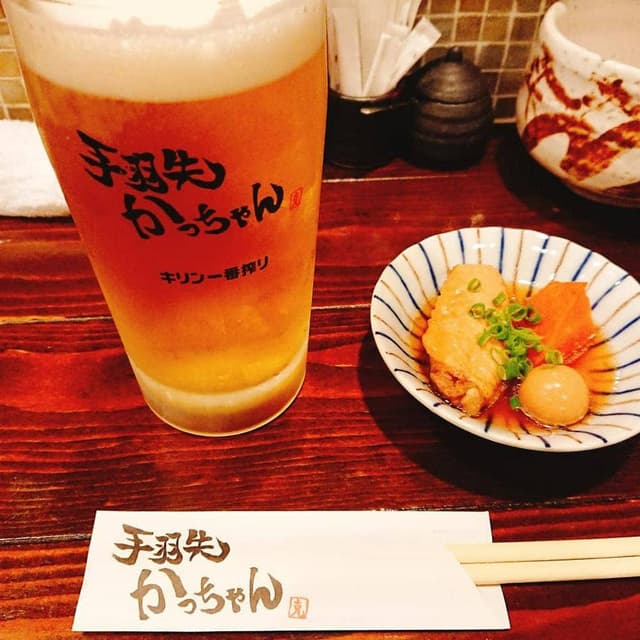 手羽先
かっちゃん
克
キリン一番搾り
手羽先
かっちゃん
克